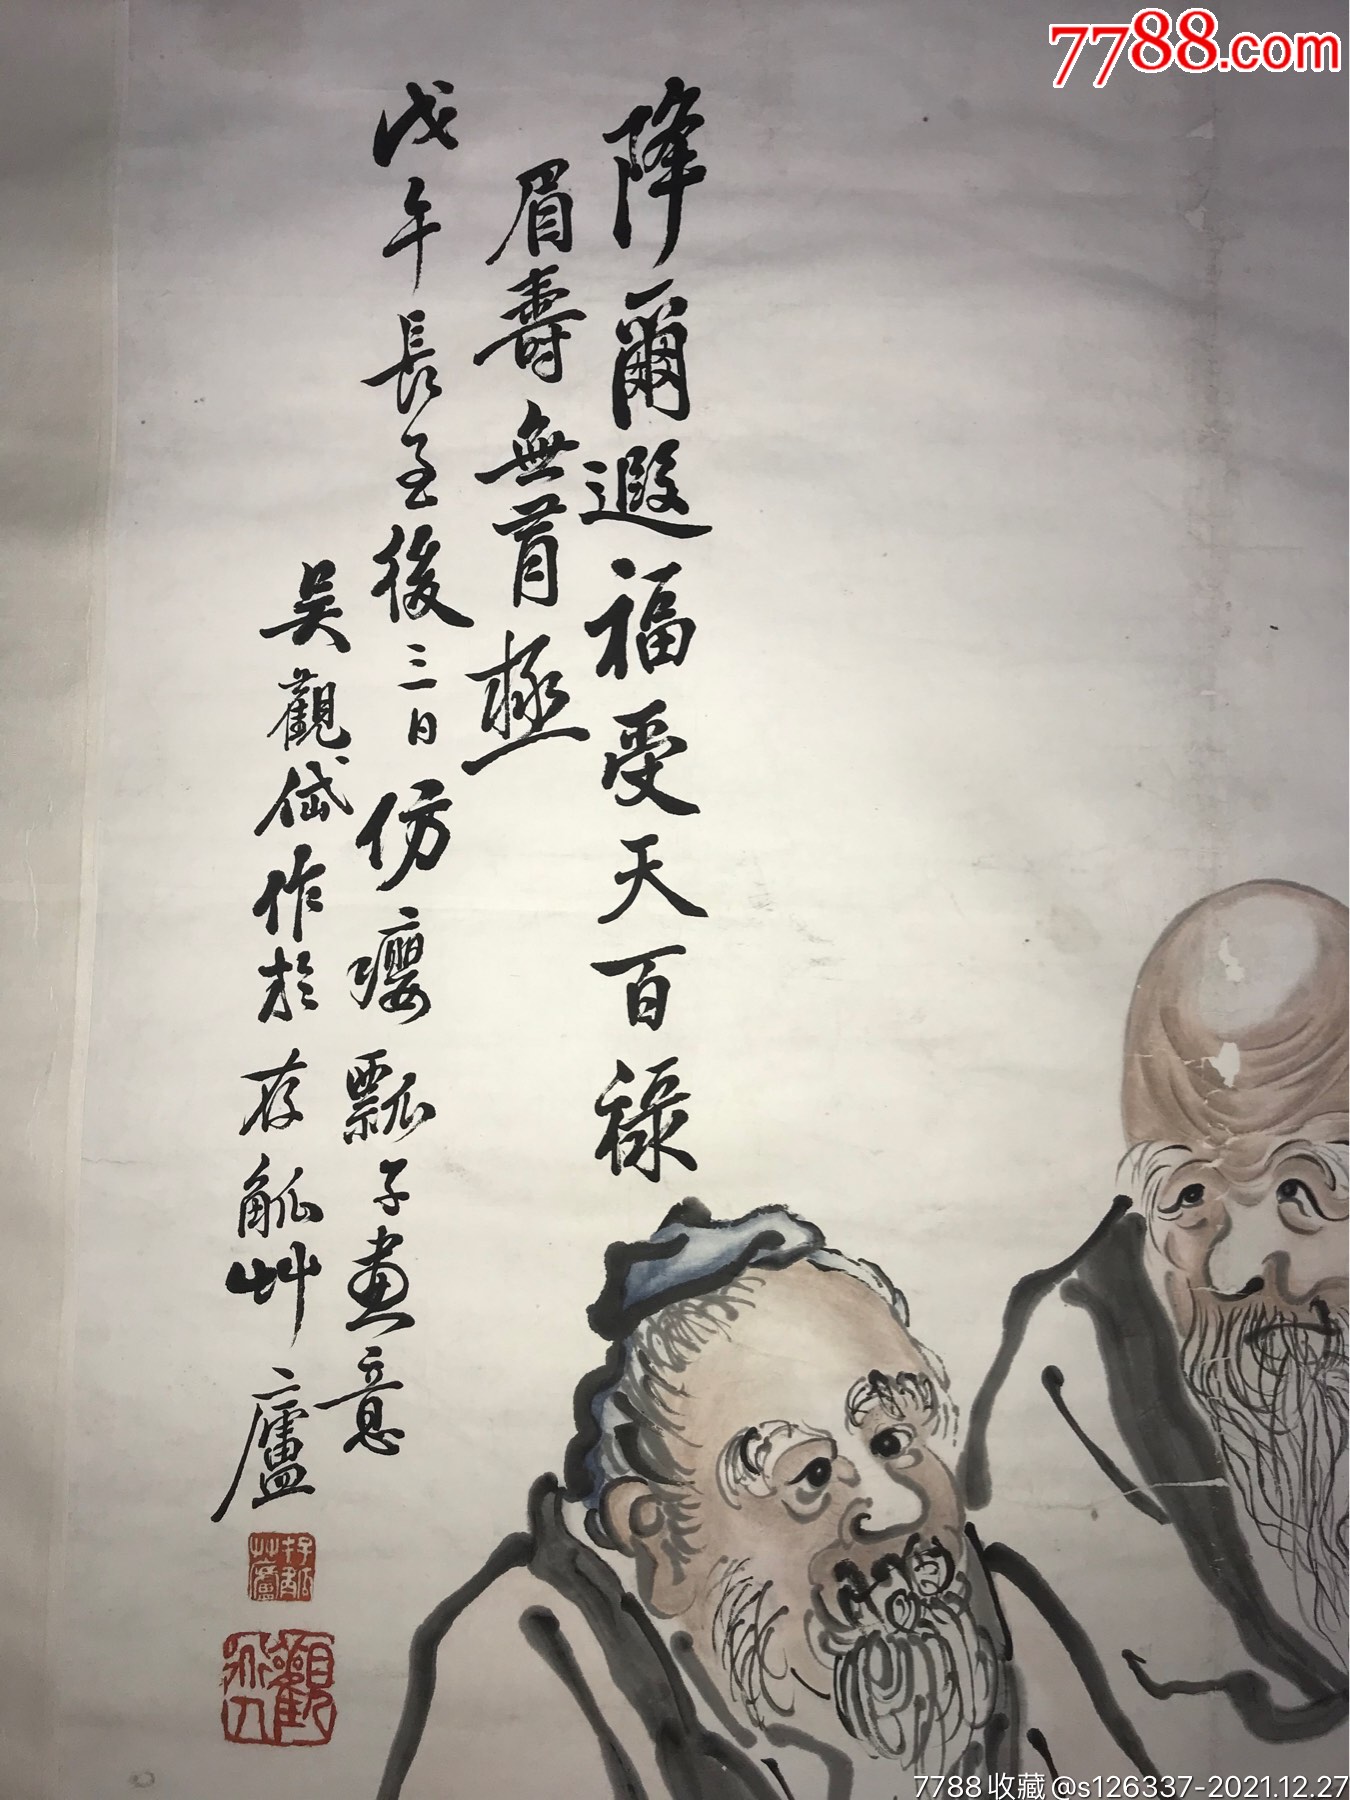 7788.com
降爾遐福受天百祿
眉壽無有極
戊午長至後三日仿癭瓢子畫意
吳觀岱作於存觚艸廬
存觚艸廬
觀岱
7788收藏@s126337-2021.12.27